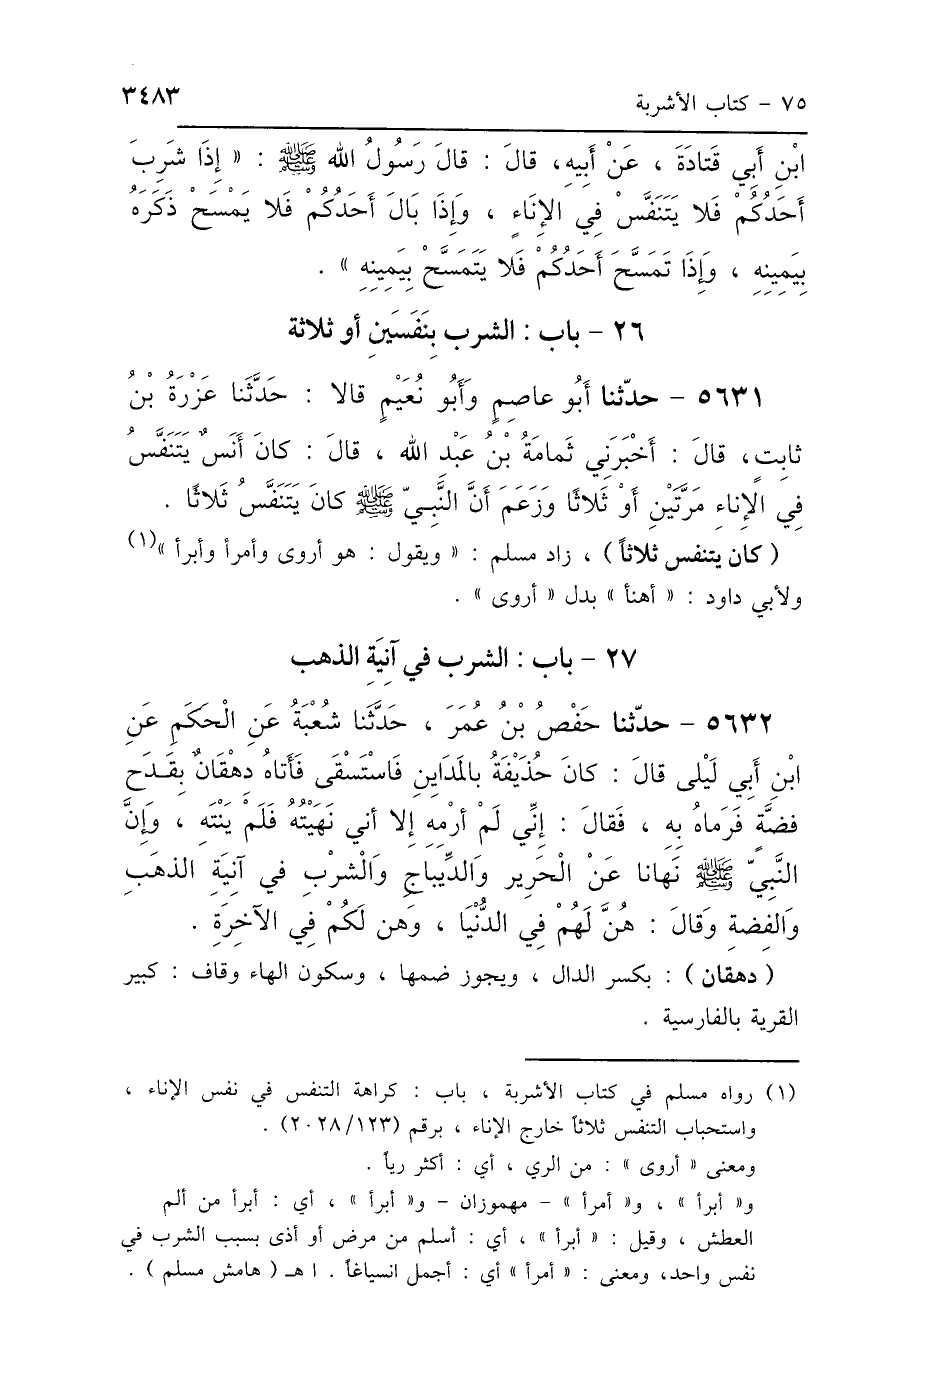 ٧٥ – كتاب الأشربة
٣٤٨٣
ابْنِ أَبِي قَتَادَةَ ، عَنْ أَبِيهِ، قالَ : قالَ رَسُولُ الله ﷺ : « إِذَا شَرِبَ
أَحَدُكُمْ فَلا يَتَنَفَّسْ فِي الإنَاءِ ، وَإِذَا بَالَ أَحَدُكُمْ فَلا يَمْسَحْ ذَكَرَهُ
بِيَمِينِهِ ، وَإِذَا تَمَسَّحَ أَحَدُكُمْ فَلا يَتَمَسَّحْ بِيَمِينِهِ » .
٢٦ – باب : الشرب بِنَفَسَينِ أو ثلاثة
٥٦٣١ – حدّثنا أَبُو عاصِمٍ وَأَبُو نُعَيْمٍ قالا : حَدَّثَنا عَزْرَةُ بْنُ
ثابِتٍ، قالَ : أَخْبَرَنِي ثَمامَةُ بْنُ عَبْدِ الله ، قالَ : كانَ أَنَسٌ يَتَنَفَّسُ
فِي الإناءِ مَرَّتَيْنِ أَوْ ثَلاثًا وَزَعَمَ أَنَّ النَّبِيّ ﷺ كانَ يَتَنَفَّسُ ثَلاثًا .
( كان يتنفس ثلاثاً ) ، زاد مسلم : « ويقول : هو أروى وأمرأ وأبرأ »(١)
ولأبي داود : « أهنأ » بدل « أروى » .
٢٧ – باب : الشرب في آنيَةِ الذهب
٥٦٣٢ – حدّثنا حَفْصُ بْنُ عُمَرَ ، حَدَّثَنا شُعْبَةُ عَنِ الْحَكَمِ عَنِ
ابْنِ أَبِي لَيْلى قالَ : كانَ حُذَيْفَةُ بِالمَدَاينِ فَاسْتَسْقَى فَأَتاهُ دِهْقَانٌ بِقَـدَحِ
فضَّةٍ فَرَماهُ بِهِ ، فَقالَ : إِنِّي لَمْ أرْمِهِ إلا أني نَهَيْتُهُ فَلَمْ يَنْتَهِ ، وَإِنَّ
النَّبِيّ ﷺ نَهانا عَنْ الْحَرِيرِ وَالدِّيباجِ وَالْشرْبِ في آنِيَةِ الذهَبِ
وَالفِضةِ وَقالَ : هُنَّ لَهُمْ فِي الدُّنْيَا ، وَهن لَكُمْ فِي الآخِرَةِ .
( دهقان ) : بكسر الدال ، ويجوز ضمها ، وسكون الهاء وقاف : كبير
القرية بالفارسية .
(١) رواه مسلم في كتاب الأشربة ، باب : كراهة التنفس في نفس الإناء ،
واستحباب التنفس ثلاثاً خارج الإناء ، برقم (٢٠٢٨/١٢٣) .
ومعنى « أروى » : من الري ، أي : أكثر رياً .
و« أبرأ » ، و« أمرأ » – مهموزان – و« أبرأ » ، أي : أبرأ من ألم
العطش ، وقيل : « أبرأ » ، أي : أسلم من مرض أو أذى بسبب الشرب في
نفس واحد، ومعنى : « أمرأ » أي : أجمل انسياغاً . ا هـ ( هامش مسلم ) .